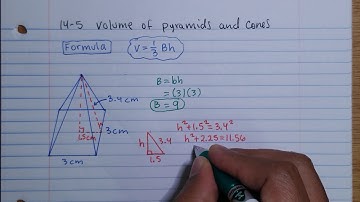 14-5 volume of pyramids and cones
Formula V = 1/3 Bh
B = bh
= (3)(3)
B = 9
3.4cm
1.5cm
3cm
3cm
h 3.4
1.5
h² + 1.5² = 3.4²
h² + 2.25 = 11.56